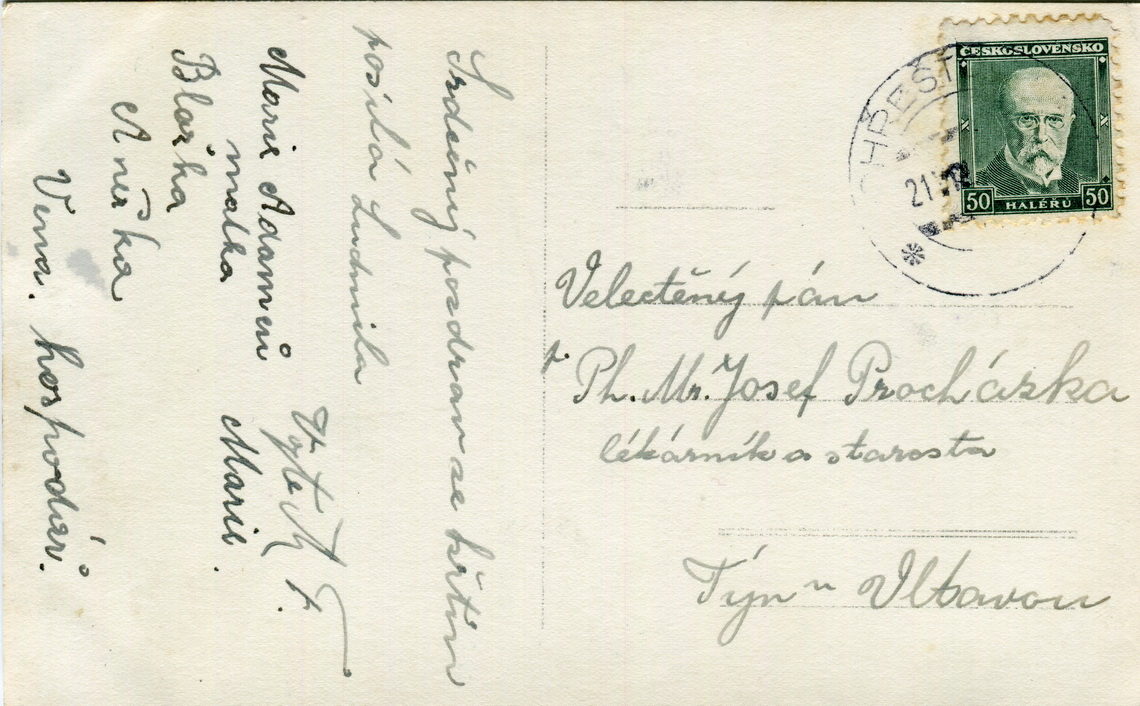 Srdečný pozdrav se křtin
posílá Ludmila
Marie Adamců
matka Marie.
Blažka
Anička
Vema. hospodář.
ČESKOSLOVENSKO
50 HALÉŘŮ 50
CHŘEŠŤ
21
Velectěný pán
Ph. Mr. Josef Procházka
lékárník a starosta
Týn n Vltavou